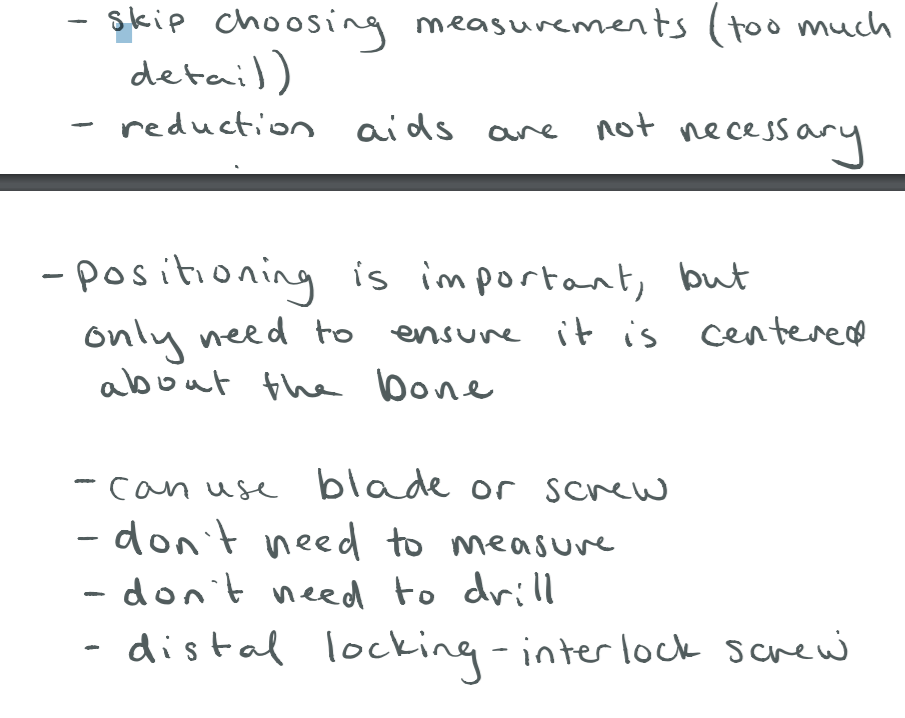 - skip choosing measurements (too much
detail)
- reduction aids are not necessary
- positioning is important, but
only need to ensure it is centered
about the bone
- can use blade or screw
- don't need to measure
- don't need to drill
- distal locking - interlock screw